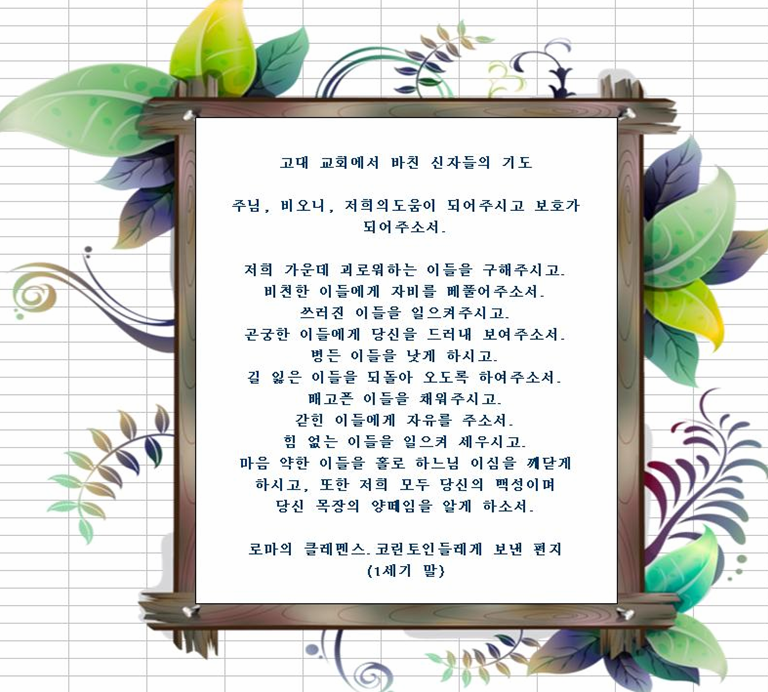 고대 교회에서 바친 신자들의 기도
주님, 비오니, 저희의도움이 되어주시고 보호가
되어주소서.
저희 가운데 괴로워하는 이들을 구해주시고.
비천한 이들에게 자비를 베풀어주소서.
쓰러진 이들을 일으켜주시고.
곤궁한 이들에게 당신을 드러내 보여주소서.
병든 이들을 낫게 하시고.
길 잃은 이들을 되돌아 오도록 하여주소서.
배고픈 이들을 채워주시고.
갇힌 이들에게 자유를 주소서.
힘 없는 이들을 일으켜 세우시고.
마음 약한 이들을 홀로 하느님 이심을 깨닫게
하시고, 또한 저희 모두 당신의 백성이며
당신 목장의 양떼임을 알게 하소서.
로마의 클레멘스.코린토인들레게 보낸 편지
(1세기 말)